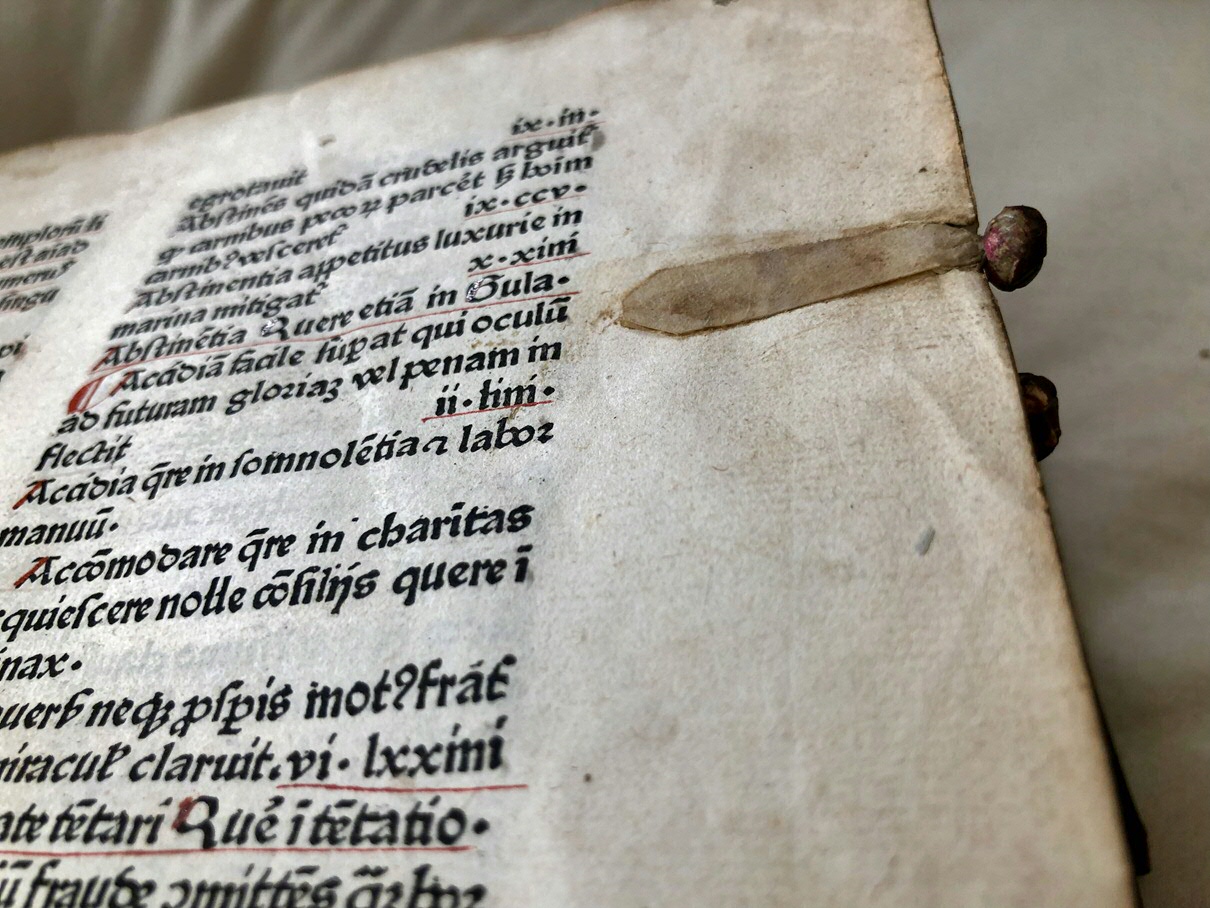 emplorū li
est aiad
fingu
ix·iii·
egrotauit
Abstinēs quidā crudelis arguit᷑
carnibus parcēt
ix·ccv·
carnib᷒ vesceret᷑
Abstinentia appetitus luxurie in
marina mitigat᷑
x·xiiii
Abstinētia Quere etiā in Gula·
¶ Accidiā facile suꝑat qui oculū
ad futuram gloriaꝫ vel penam in
flectit
ii·liiii·
Accidia q̄re in somnolētia ⁊ laboꝛ
manuū·
Accōmodare q̄re in charitas
quiescere nolle cōsilijs quere ī
nax·
neqꝫ ꝓsꝑis mot᷒ frat᷑
miracul' claruit. vi· lxxiiii
nte tētari Quē i tētatio·
ū fraude ꝯmittēs